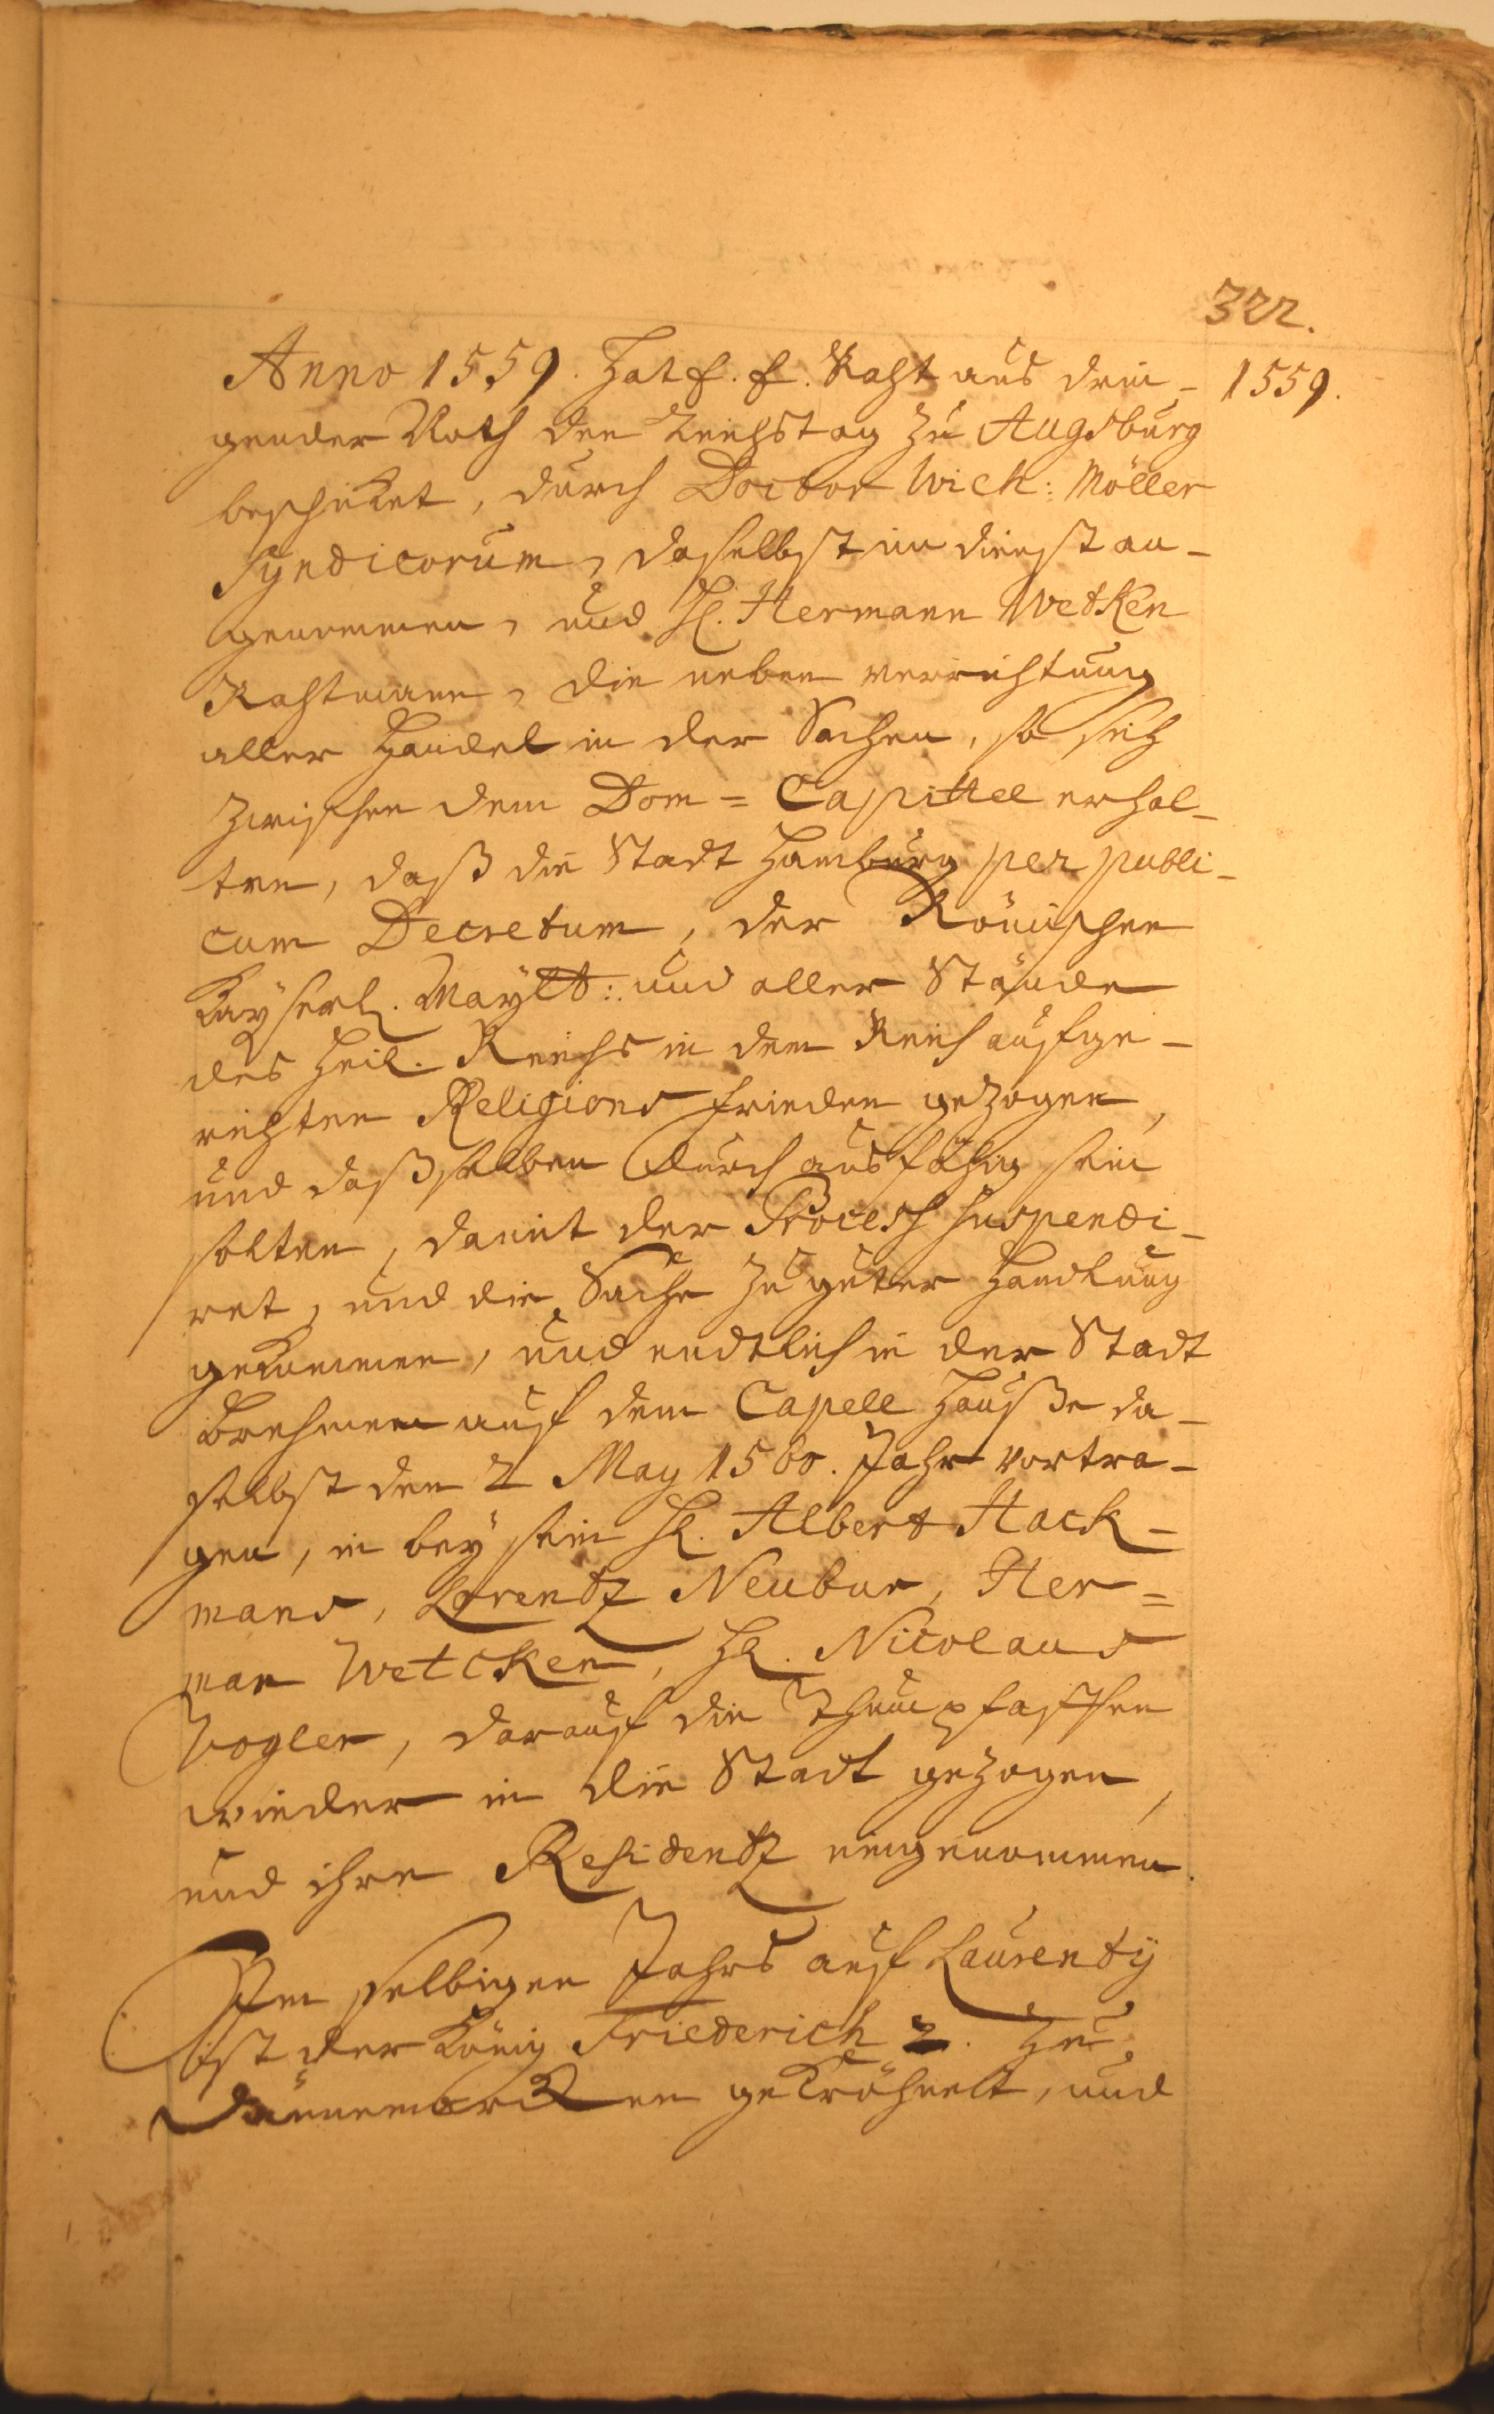 322.
Anno 1559. Hat E. E. Raht aus drin- 1559.
gender Noth den Reichstag zu Augsburg
beschicket, durch Doctor Wich: Möller
Syndicorum, daselbst im dienst an-
genommen, und H. Hermann Wetken
Rahtmann, die neben verrichtung
aller Handel in der Sachen, so sich
zwischen dem Dom = Capittel erhal-
ten, daß die Stadt Hamburg per publi-
cum Decretum, der Römischen
Kayserl. Maytt: und aller Stände
des Heil. Reichs in dem Reich aufge-
richten Religions frieden gezogen,
und daßselben durch aus fähig sein
solten, damit der Process suspendi-
ret, und die Sache zu guter Handlung
gekommen, und endtlich in der Stadt
Brehmen auf dem Capell Hauße da-
selbst den 2 May 1560. Jahr vortra-
gen, in bey sein H. Albert Hack-
mans, Lorentz Neubur, Her=
man Wetcken, H. Nicolaus
Vogler, darauf die Thumpfaffen
wieder in die Stadt gezogen,
und ihre Residentz eingenommen.
Im selbigen Jahrs auf Laurenty
ist der König Friederich 2. zu
Dännemarcken gekröhnelt, und